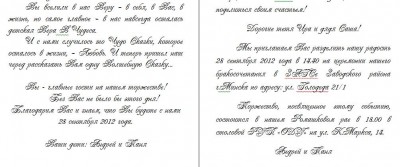 Вы вселили в нас Веру - в себя, в Вас, в
жизнь, но самое главное - в нас навсегда осталась
детская Вера В Чудеса.
И с нами случилось это Чудо Сказки, которое
осталось в жизни, - Любовь. И теперь пришел наш
черед рассказать Вам одну Волшебную Сказку...
Вы - главные гости на нашем торжестве!
Без Вас не было бы этого дня!
Благодарим Вас и знаем, что Вы будете с нами
28 сентября 2012 года.
Ваши дети: Андрей и Таня
поделиться своим счастьем!
Дорогие тетя Ира и дядя Саша!
Мы приглашаем Вас разделить нашу радость
28 сентября 2012 года в 14.40 на церемонии нашего
бракосочетания в ЗАГСе Заводского района
г.Минска по адресу: ул. Голодеда 21/1
Торжество, посвященное этому событию,
состоится в нашем Романовом рае в 18.00 в
столовой на ул. К.Маркса, 14.
Андрей и Таня